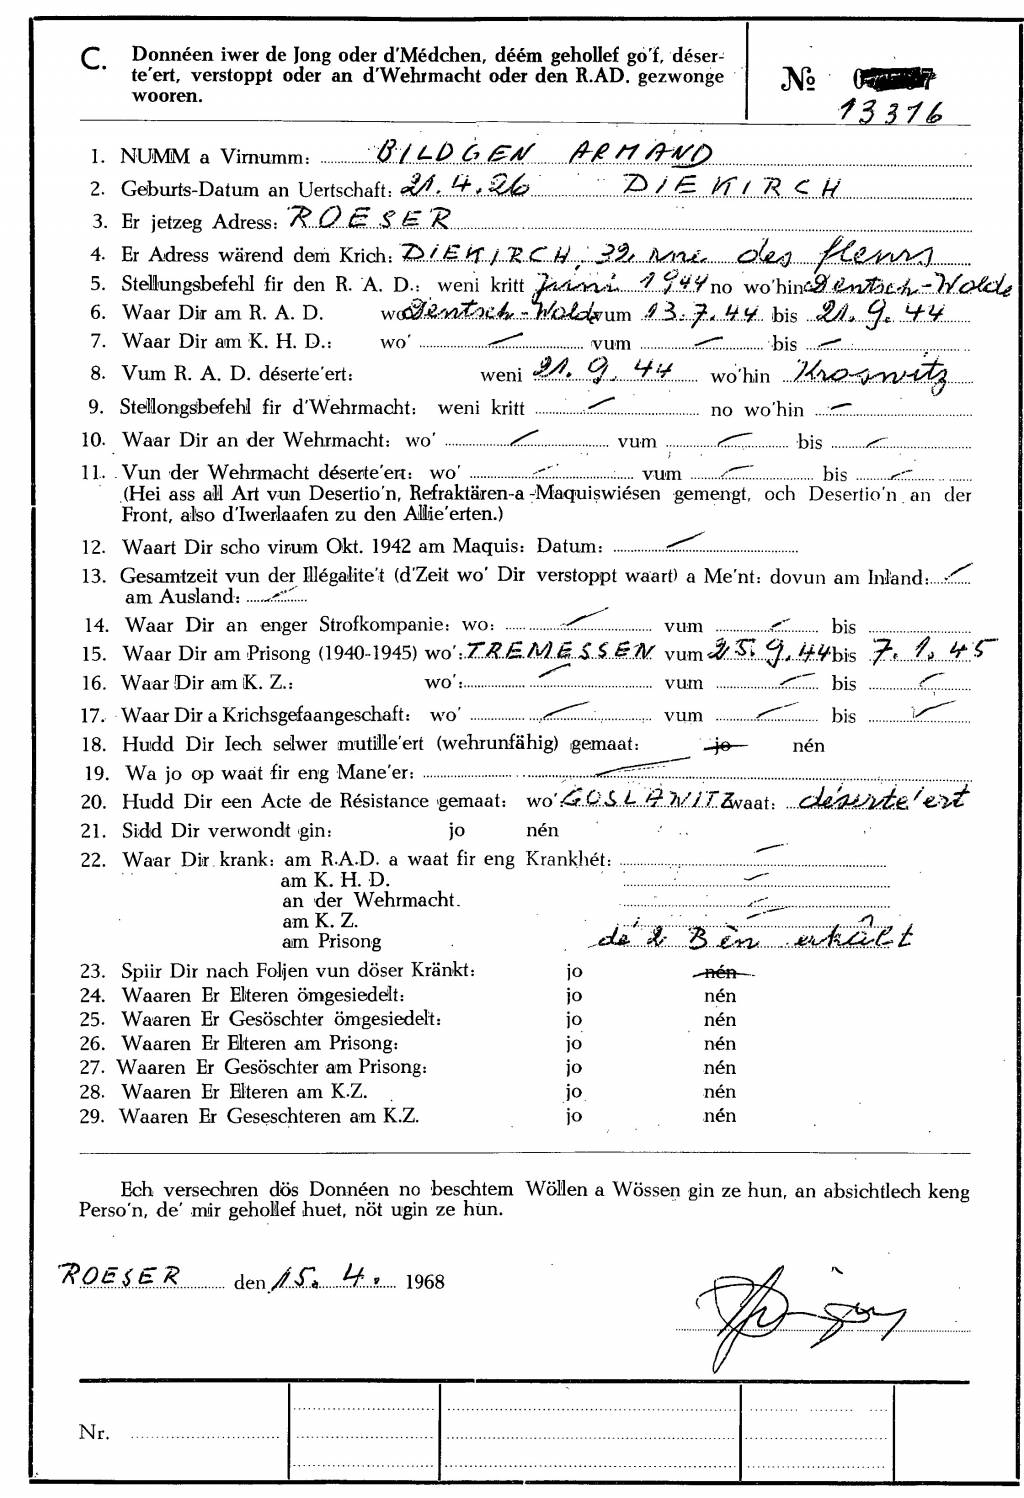 C. Donnéen iwer de Jong oder d'Médchen, déém gehollef go'f, déser-
te'ert, verstoppt oder an d'Wehrmacht oder den R.AD. gezwonge
wooren.
№
13316
1. NUMM a Virnumm: BILDGEN ARMAND
2. Geburts-Datum an Uertschaft: 21.4.26 DIEKIRCH
3. Er jetzeg Adress: ROESER
4. Er Adress wärend dem Krich: DIEKIRCH, 32, rue des fleurs
5. Stellungsbefehl fir den R. A. D.: weni kritt Juni 1944 no wo'hin Deutsch-Wolde
6. Waar Dir am R. A. D. wo Deutsch-Wolde vum 13.7.44 bis 21.9.44
7. Waar Dir am K. H. D.: wo' — vum — bis —
8. Vum R. A. D. déserte'ert: weni 21.9.44 wo'hin
9. Stellongsbefehl fir d'Wehrmacht: weni kritt — no wo'hin —
10. Waar Dir an der Wehrmacht: wo' — vum — bis —
11. Vun der Wehrmacht déserte'ert: wo' — vum — bis —
(Hei ass all Art vun Desertio'n, Refraktären-a-Maquiswiésen gemengt, och Desertio'n an der
Front, also d'Iwerlaafen zu den Allie'erten.)
12. Waart Dir scho virum Okt. 1942 am Maquis: Datum: —
13. Gesamtzeit vun der Illégalite't (d'Zeit wo' Dir verstoppt waart) a Me'nt: dovun am Inland: —
am Ausland: —
14. Waar Dir an enger Strofkompanie: wo: — vum — bis
15. Waar Dir am Prisong (1940-1945) wo': TREMESSEN vum 25.9.44 bis 7.1.45
16. Waar Dir am K. Z.: wo': — vum — bis —
17. Waar Dir a Krichsgefaangeschaft: wo' — vum — bis —
18. Hudd Dir Iech selwer mutille'ert (wehrunfähig) gemaat: jo nén
19. Wa jo op waat fir eng Mane'er: —
20. Hudd Dir een Acte de Résistance gemaat: wo' GOSLAWITZ waat: déserte'ert
21. Sidd Dir verwondt gin: jo nén
22. Waar Dir krank: am R.A.D. a waat fir eng Krankhét: —
am K. H. D. —
an der Wehrmacht. —
am K. Z. —
am Prisong dé 2 Bèn erkâlt
23. Spiir Dir nach Foljen vun döser Kränkt: jo nén
24. Waaren Er Elteren ömgesiedelt: jo nén
25. Waaren Er Gesöschter ömgesiedelt: jo nén
26. Waaren Er Elteren am Prisong: jo nén
27. Waaren Er Gesöschter am Prisong: jo nén
28. Waaren Er Elteren am K.Z. jo nén
29. Waaren Er Geseschteren am K.Z. jo nén
Ech versechren dös Donnéen no beschtem Wöllen a Wössen gin ze hun, an absichtlech keng
Perso'n, de' mir gehollef huet, nöt ugin ze hun.
ROESER den 15.4. 1968
Nr.